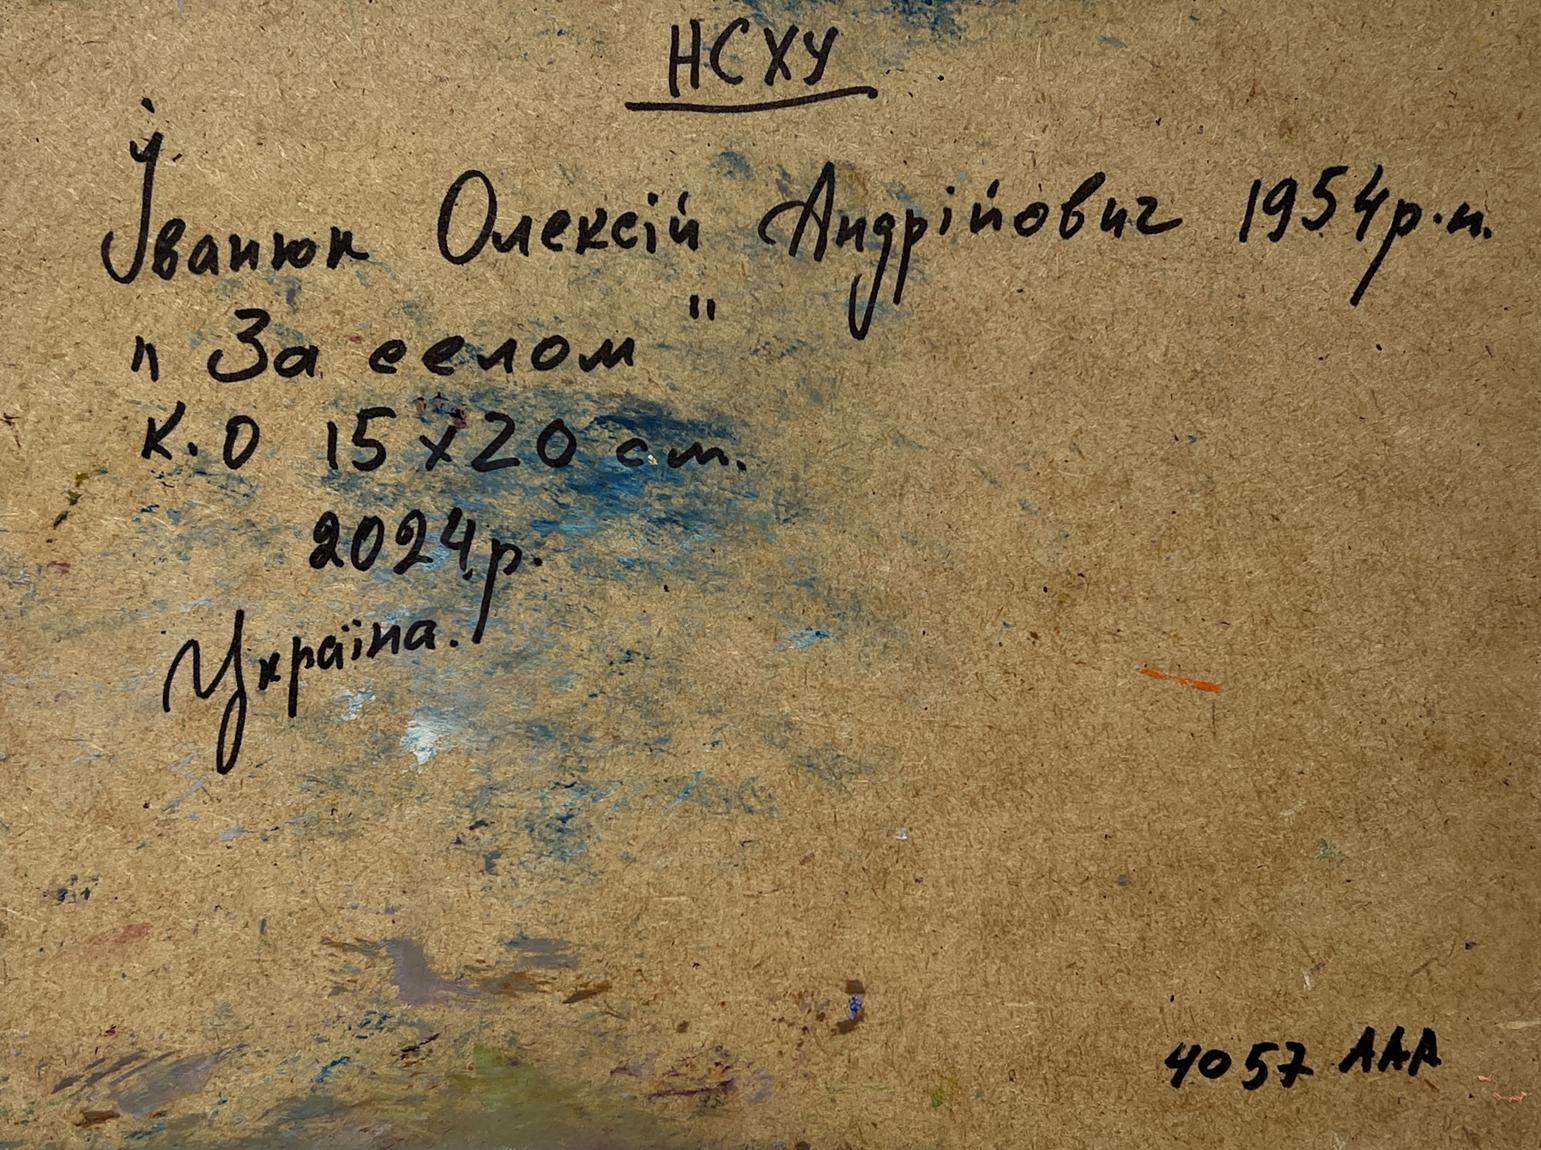 НСХУ
Іванюк Олексій Андрійович 1954р.н.
„За селом"
К.О 15х20 см.
2024р.
Україна.
4057 ААА